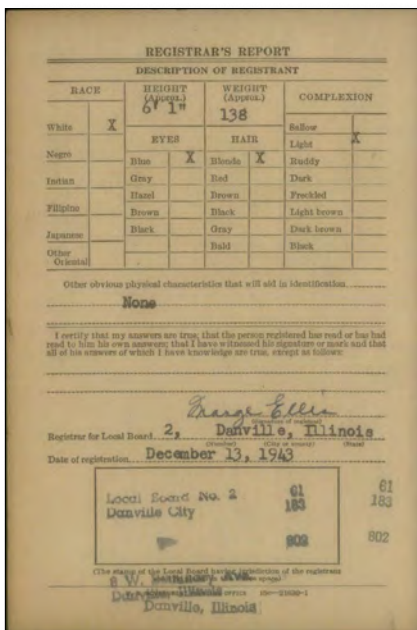 REGISTRAR'S REPORT
DESCRIPTION OF REGISTRANT
RACE
HEIGHT (Approx.)
WEIGHT (Approx.)
COMPLEXION
6' 1"
138
White X
Sallow
EYES
HAIR
Light X
Negro
Blue X
Blonde X
Ruddy
Indian
Gray
Red
Dark
Hazel
Brown
Freckled
Filipino
Brown
Black
Light brown
Japanese
Black
Gray
Dark brown
Other Oriental
Bald
Black
Other obvious physical characteristics that will aid in identification
None
I certify that my answers are true; that the person registered has read or has had
read to him his own answers; that I have witnessed his signature or mark and that
all of his answers of which I have knowledge are true, except as follows:
Marge Ellis
(Signature of registrar)
Registrar for Local Board 2, Danville, Illinois
(Number) (City or county) (State)
Date of registration December 13, 1943
Local Board No. 2 61 61
Danville City 183 183
802 802
(The stamp of the Local Board having jurisdiction of the registrant
Danville, Illinois